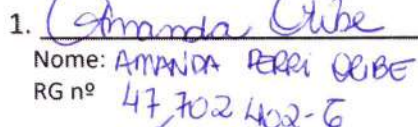 1. Amanda Oribe
Nome: AMANDA PERRI ORIBE
RG nº 47,702 402-6